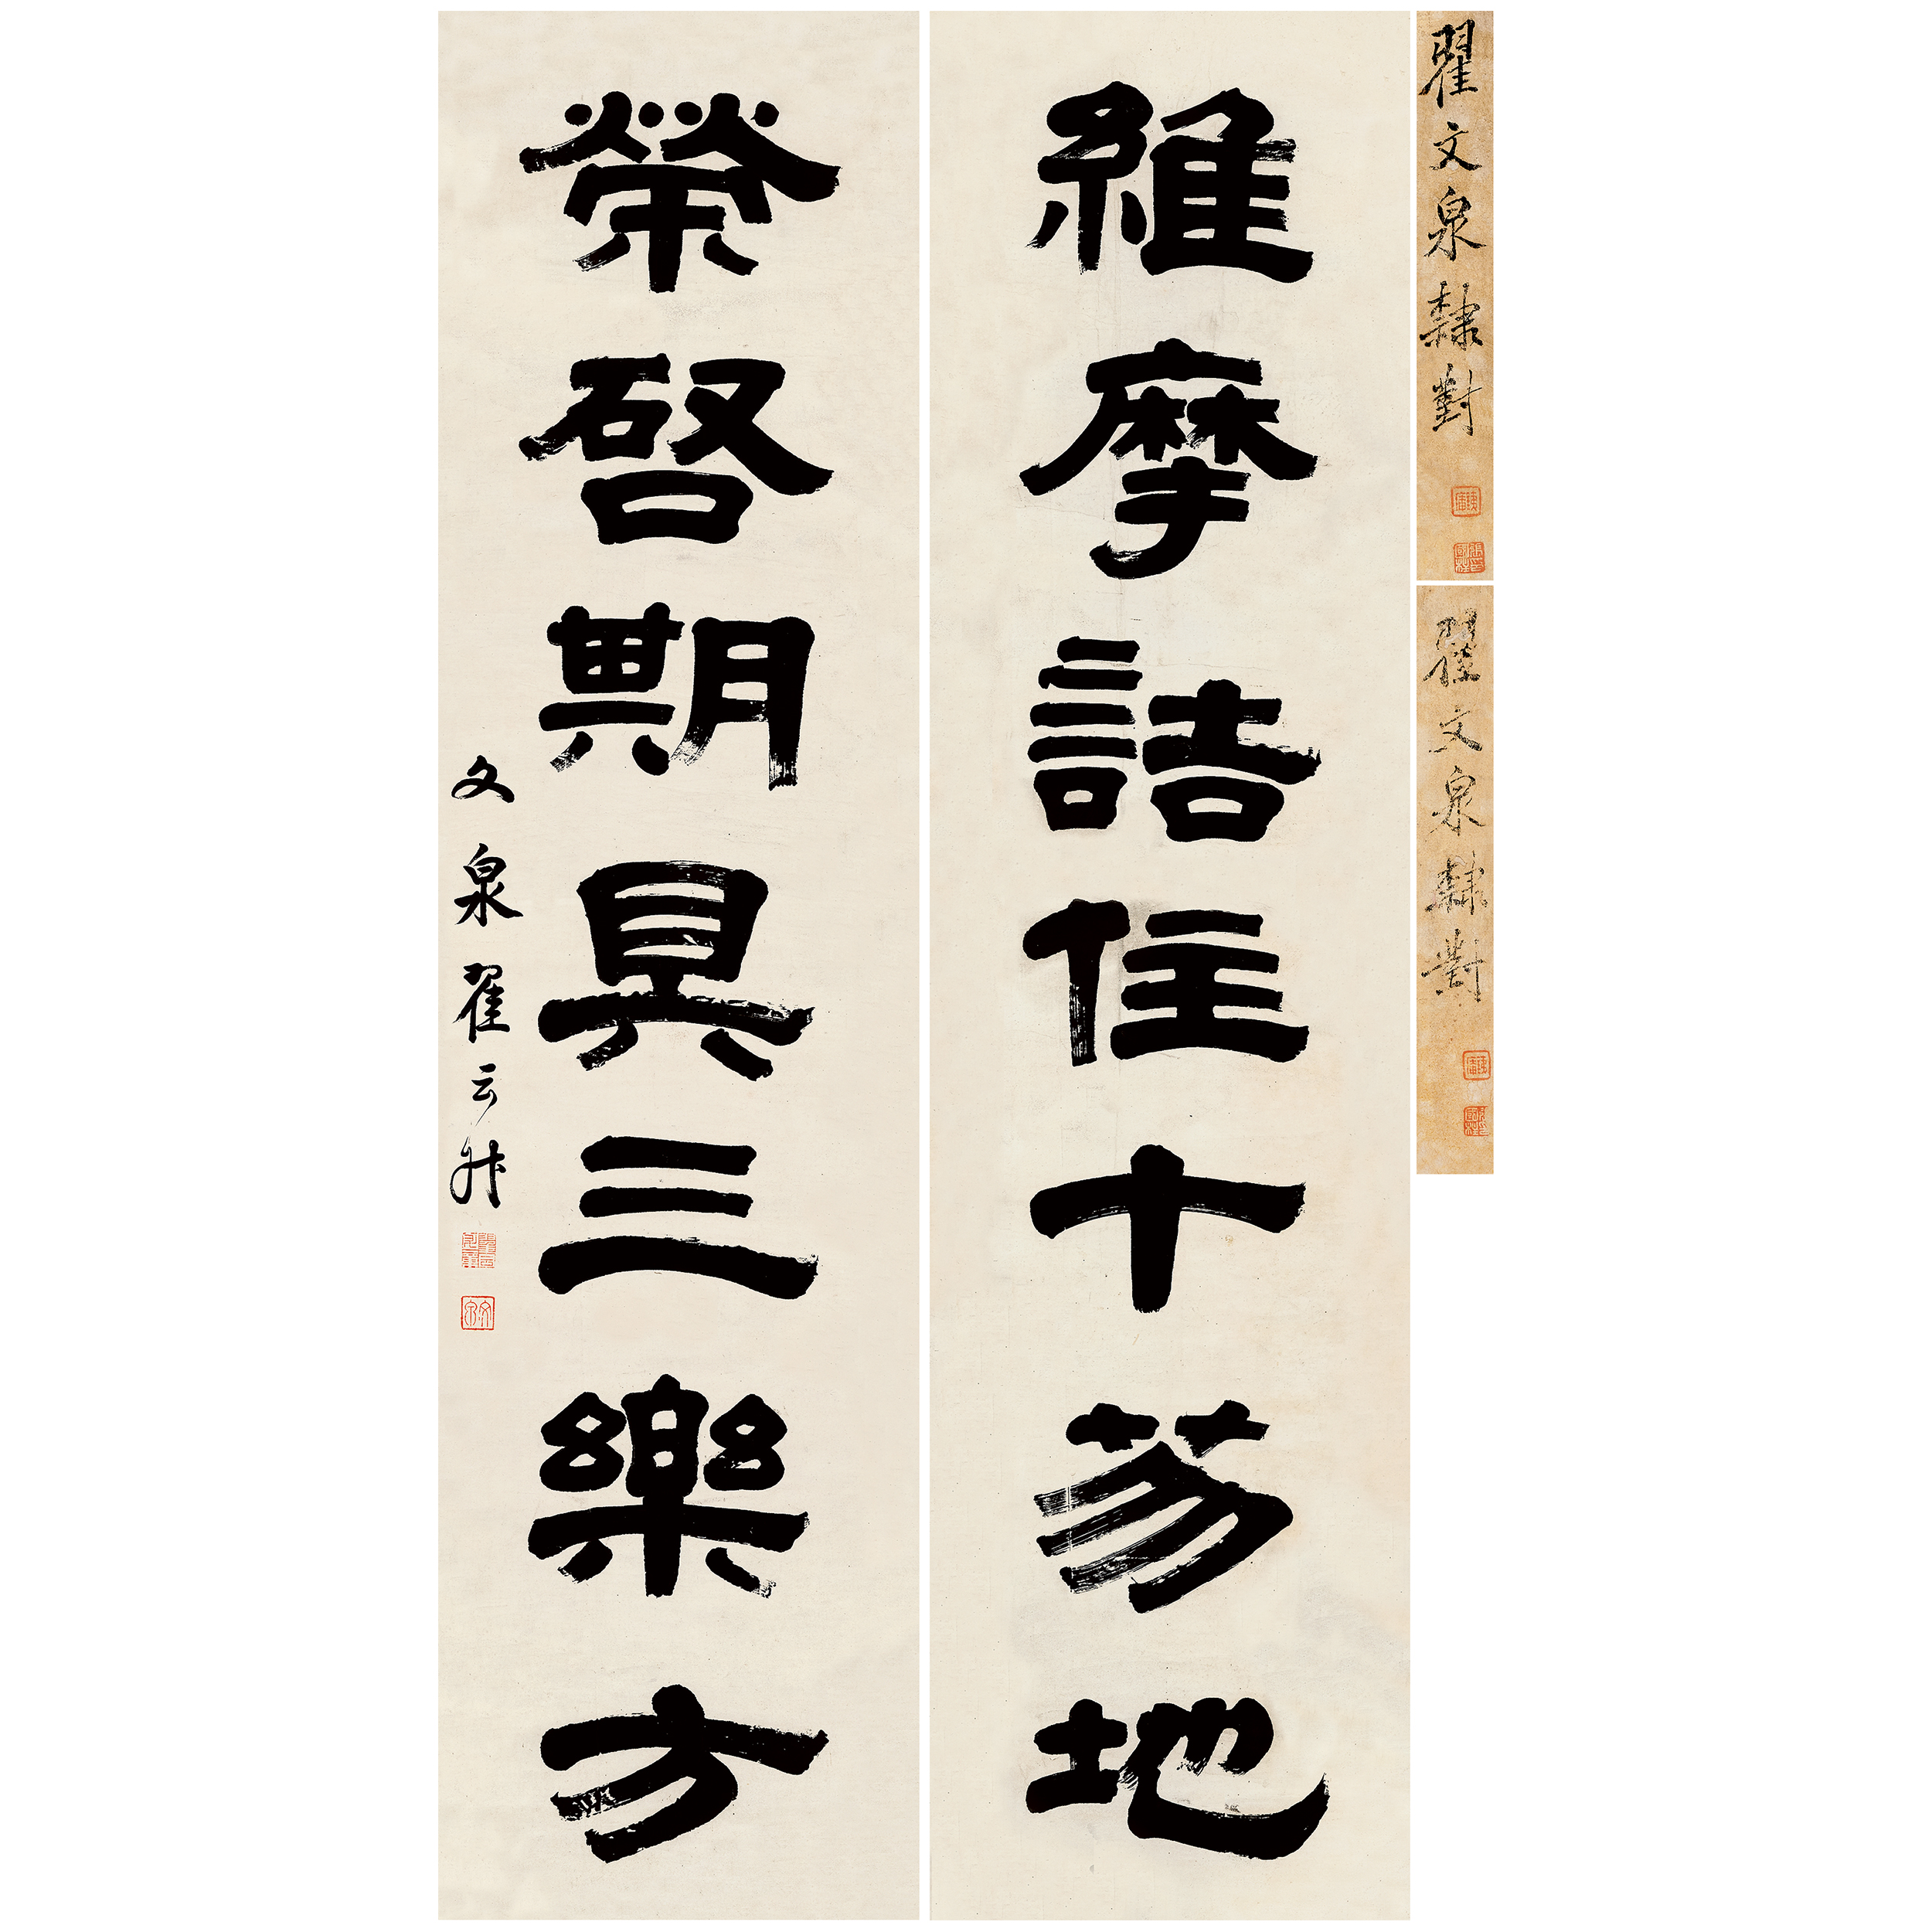 翟文泉隸對
翟文泉隸對
維摩詰住十芴地
榮啓期具三樂方
文泉翟云升